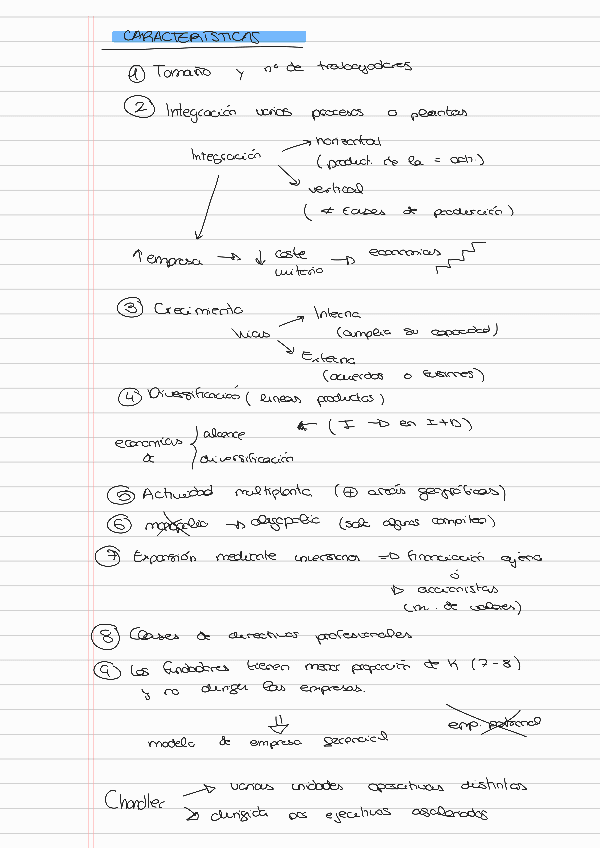 CARACTERÍSTICAS
① Tamaño y nº de trabajadores
② Integración varios procesos o plantas
Integración → horizontal
(product. de la = act.)
→ vertical
(≠ clases de producción)
↑ empresa → ↓ coste unitario → economías
③ Crecimiento
Vías → Interna
(amplia su capacidad)
→ Externa
(acuerdos o fusiones)
④ Diversificación (líneas productos)
← (I → en I+D)
economías de { alcance
diversificación
⑤ Actividad multiplanta (⊕ áreas geográficas)
⑥ monopolio → oligopolio (solo algunas compiten)
⑦ Expansión mediante inversiones ⇒ financiación ajena
ó
→ accionistas
(m. de valores)
⑧ Clases de directivos profesionales
⑨ Los fundadores tienen menor proporción de K (7-8)
y no dirigen las empresas.
⇓
emp. personal
modelo de empresa gerencial
Chandler → varias unidades operativas distintas
→ dirigida por ejecutivos asalariados